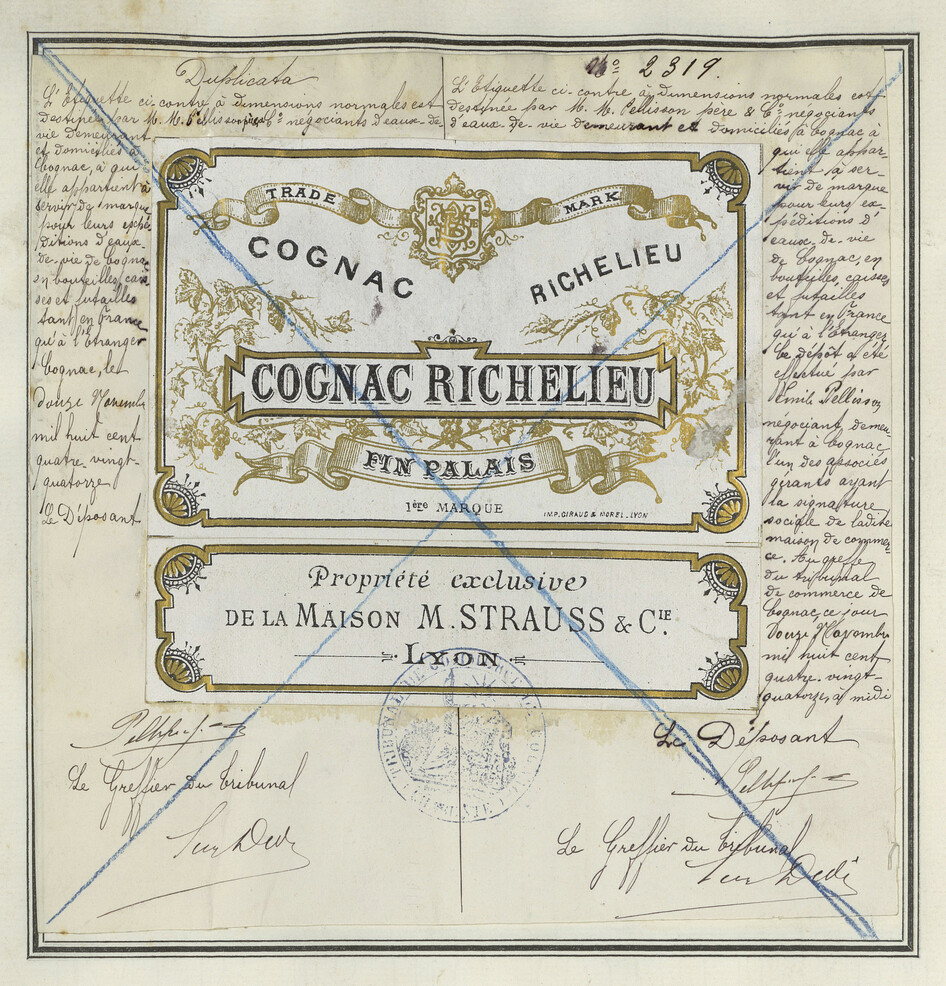 Duplicata
L'Etiquette ci-contre à dimensions normales est
destinée par M. M. Pellisson père & Cie négociants d'eaux-de-
vie demeurant
et domiciliés à
Cognac, à qui
elle appartient à
servir de marque
pour leurs expé-
ditions d'eaux-
de-vie de Cognac
en bouteilles, cais-
ses et futailles
tant en France
qu'à l'Etranger
Cognac, le
douze Novembre
mil huit cent
quatre-vingt-
quatorze
Le Déposant
No 2319.
L'Etiquette ci-contre à dimensions normales est
destinée par M. M. Pellisson père & Cie négociants
d'eaux-de-vie demeurant et domiciliés à Cognac à
qui elle appar-
tient à ser-
vir de marque
pour leurs ex-
péditions d'
eaux-de-vie
de Cognac, en
bouteilles, caisses
et futailles
tant en France
qu'à l'Etranger
Le dépôt a été
effectué par
Emile Pellisson
négociant, demeu-
rant à Cognac,
l'un des associés
gérants ayant
la signature
sociale de ladite
maison de commer-
ce. Au greffe
du tribunal
de commerce de
Cognac, ce jour
douze Novembre
mil huit cent
quatre-vingt-
quatorze, à midi
TRADE MARK
COGNAC RICHELIEU
COGNAC RICHELIEU
FIN PALAIS
1ère MARQUE
IMP. GIRAUD & MOREL. LYON
Propriété exclusive
DE LA MAISON M. STRAUSS & CIE.
LYON
TRIBUNAL DE
Le Greffier du tribunal
Le Déposant
Le Greffier du Tribunal